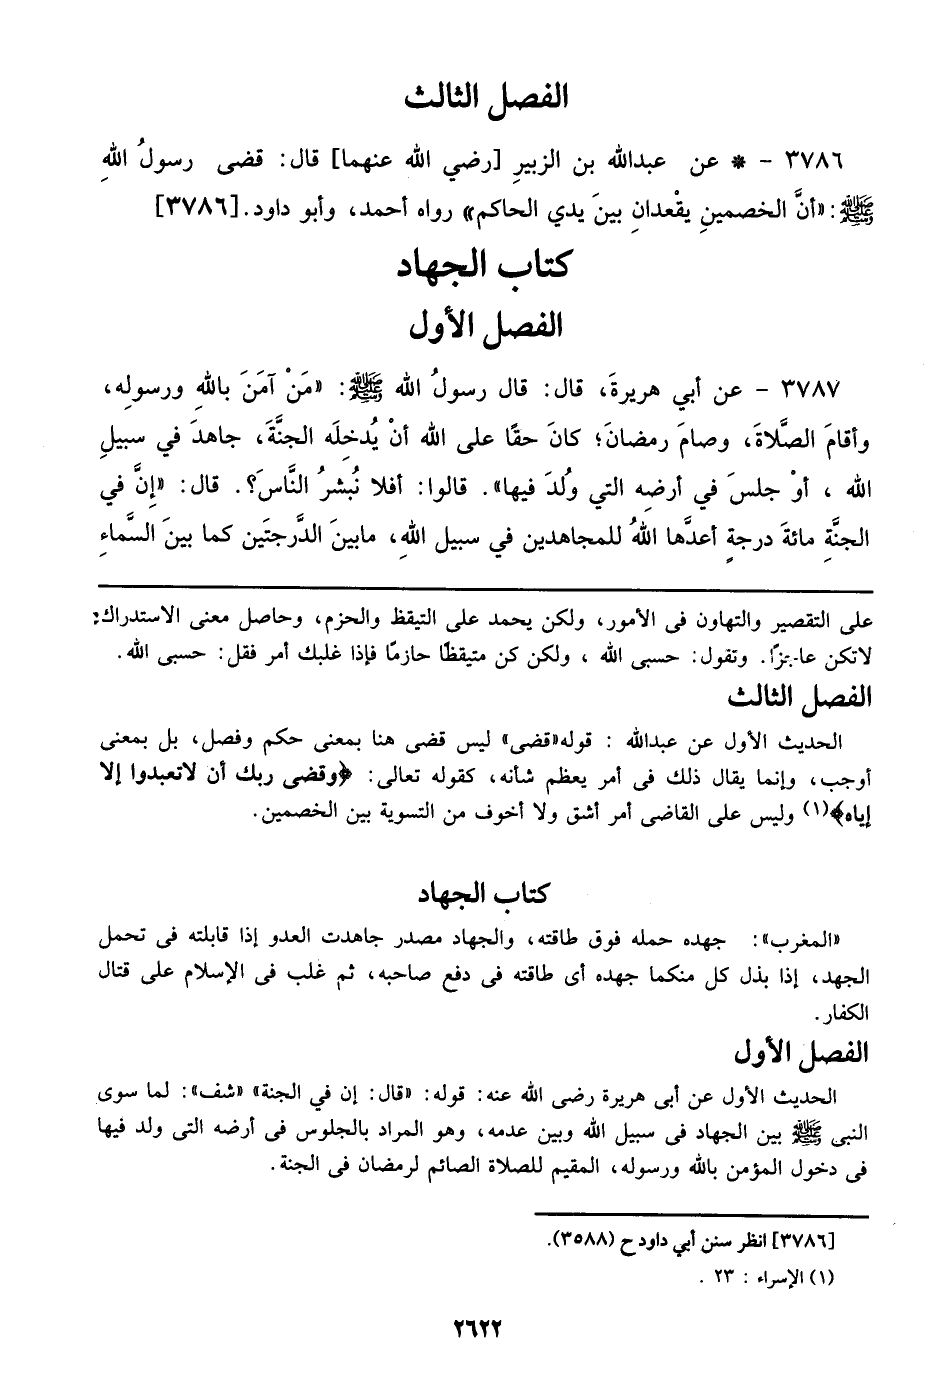 الفصل الثالث
٣٧٨٦ - * عن عبدالله بن الزبيرِ [رضي الله عنهما] قال: قضى رسولُ اللهِ
ﷺ: «أنَّ الخصمينِ يقْعدانِ بينَ يدي الحاكم» رواه أحمد، وأبو داود. [٣٧٨٦]
كتاب الجهاد
الفصل الأول
٣٧٨٧ - عن أبي هريرةَ، قال: قال رسولُ الله ﷺ: «مَنْ آمَنَ باللهِ ورسولِه،
وأقامَ الصَّلاةَ، وصامَ رمضانَ؛ كانَ حقًا على الله أنْ يُدخِلَه الجنَّةَ، جاهدَ في سبيلِ
الله ، أوْ جلسَ في أرضِه التي وُلدَ فيها». قالوا: أفلا نُبشرُ النَّاسَ؟. قال: «إنَّ في
الجنَّةِ مائةَ درجةٍ أعدَّها اللهُ للمجاهدين في سبيل اللهِ، مابينَ الدَّرجتَين كما بينَ السَّماءِ
على التقصير والتهاون فى الأمور، ولكن يحمد على التيقظ والحزم، وحاصل معنى الاستدراك:
لاتكن عاجزًا. وتقول: حسبى الله ، ولكن كن متيقظًا حازمًا فإذا غلبك أمر فقل: حسبى الله.
الفصل الثالث
الحديث الأول عن عبدالله : قوله«قضى» ليس قضى هنا بمعنى حكم وفصل، بل بمعنى
أوجب، وإنما يقال ذلك فى أمر يعظم شأنه، كقوله تعالى: ﴿وقضى ربك أن لاتعبدوا إلا
إياه﴾(١) وليس على القاضى أمر أشق ولا أخوف من التسوية بين الخصمين.
كتاب الجهاد
«المغرب»: جهده حمله فوق طاقته، والجهاد مصدر جاهدت العدو إذا قابلته فى تحمل
الجهد، إذا بذل كل منكما جهده أى طاقته فى دفع صاحبه، ثم غلب فى الإسلام على قتال
الكفار.
الفصل الأول
الحديث الأول عن أبى هريرة رضى الله عنه: قوله: «قال: إن في الجنة» «شف»: لما سوى
النبى ﷺ بين الجهاد فى سبيل الله وبين عدمه، وهو المراد بالجلوس فى أرضه التى ولد فيها
فى دخول المؤمن بالله ورسوله، المقيم للصلاة الصائم لرمضان فى الجنة.
[٣٧٨٦] انظر سنن أبي داود ح (٣٥٨٨).
(١) الإسراء : ٢٣ .
٢٦٢٢